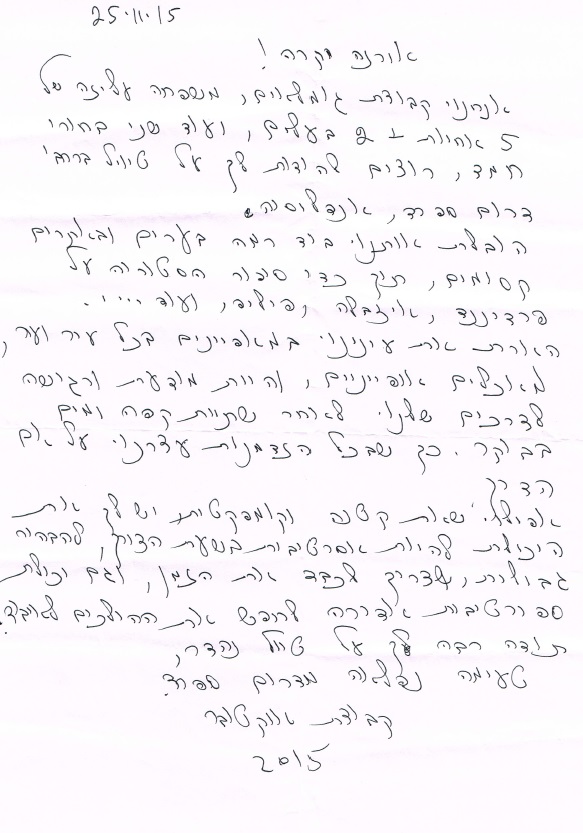 25.11.15
אורנה יקרה!
אנחנו קבוצת גמלאים, משפחה עליזה של
5 אחיות + 2 בעלים, ועוד שני בחורי
חמד, רוצים להודות לך על טיול ברחבי
דרום ספרד, אנדלוסיה.
הובלת אותנו ביד רמה בערים ובאתרים
קסומים, תוך כדי סיפור הסטוריה על
פרדיננד, איזבלה, פיליפ, ועוד....
הארת את עינינו במאפיינים בכל עיר ועיר,
מאכלים אופייניים, והיית מודעת ורגישה
לצרכים שלנו לאחר שתיית קפה ומים
בבוקר. כך שבכל הזדמנות עצרנו על אם
הדרך
אפילו שאת קטנה וקומפקטית, יש לך את
היכולת להיות אסרטיבית בשעת הצורך, להבהיר
גבולות, שצריך לכבד את הזמן, וגם יכולת
ספורטיבית אדירה לחפש את ההולכים לאיבוד.
תודה רבה לך על טיול נהדר,
טעימה נפלאה מדרום ספרד.
קבוצת אוקטובר
2015